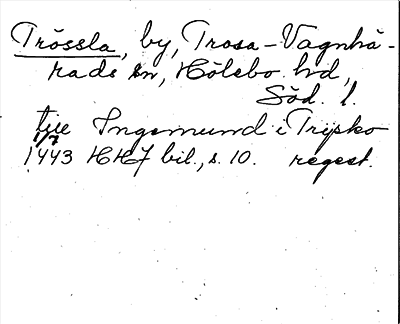 Trössla, by, Trosa-Vagnhä-
rads sn, Hölebo hd,
Söd. l.
Ingemund i Trysko
1/7
1443 HH7 bil., s. 10. regest.